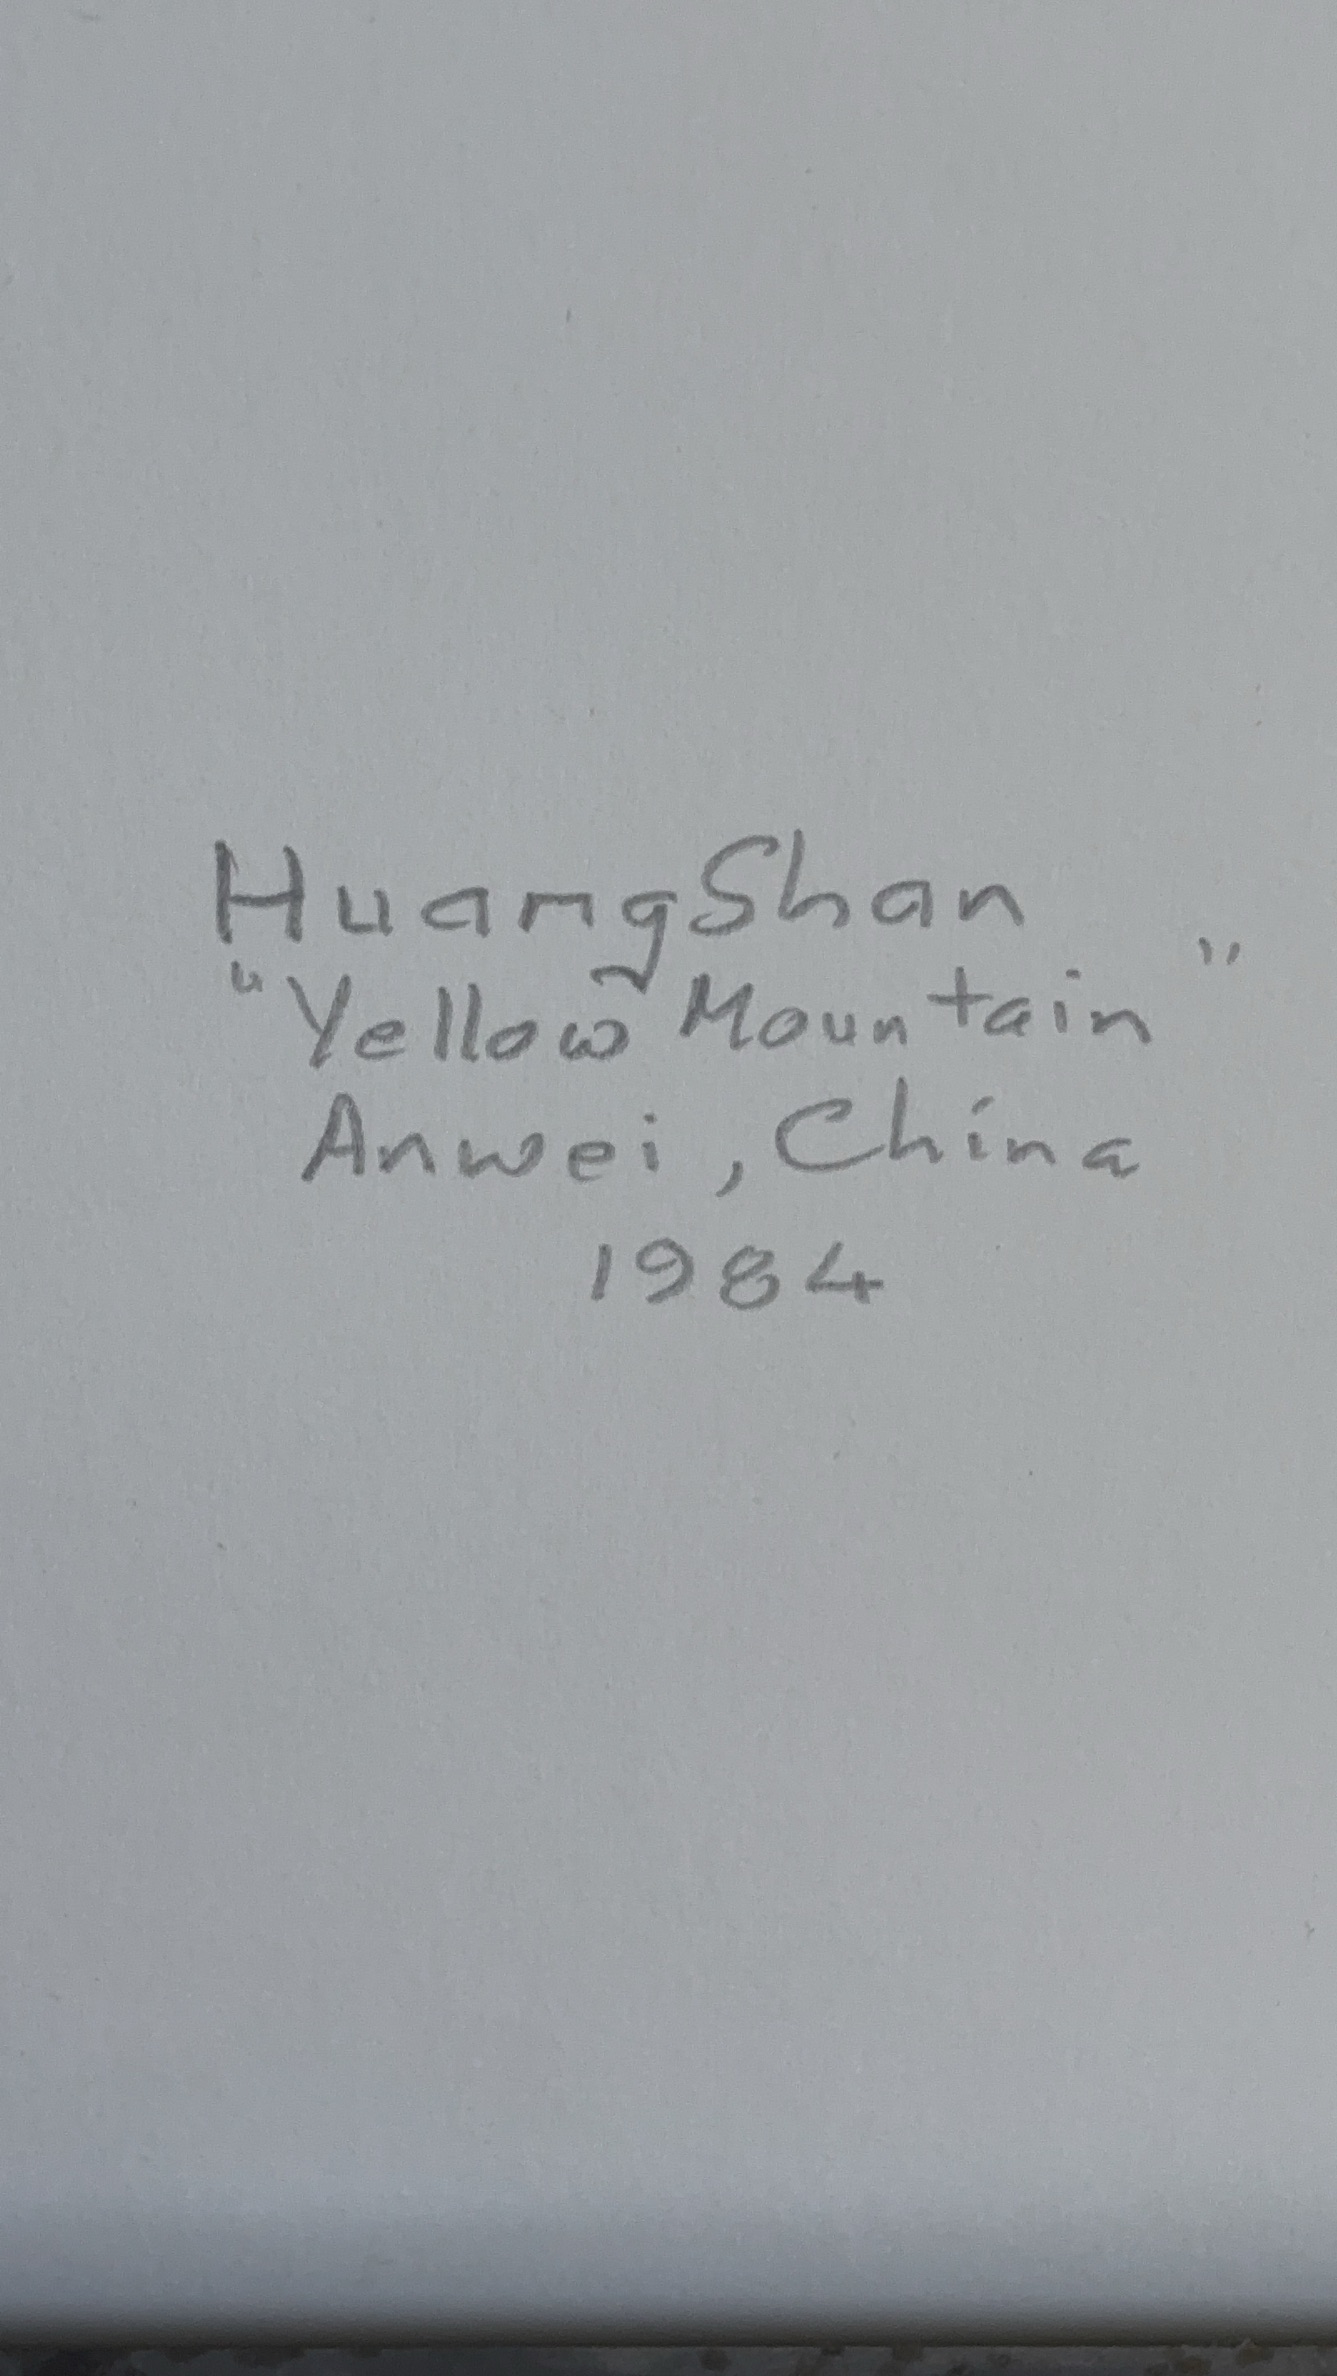 HuangShan
"Yellow Mountain"
Anwei, China
1984